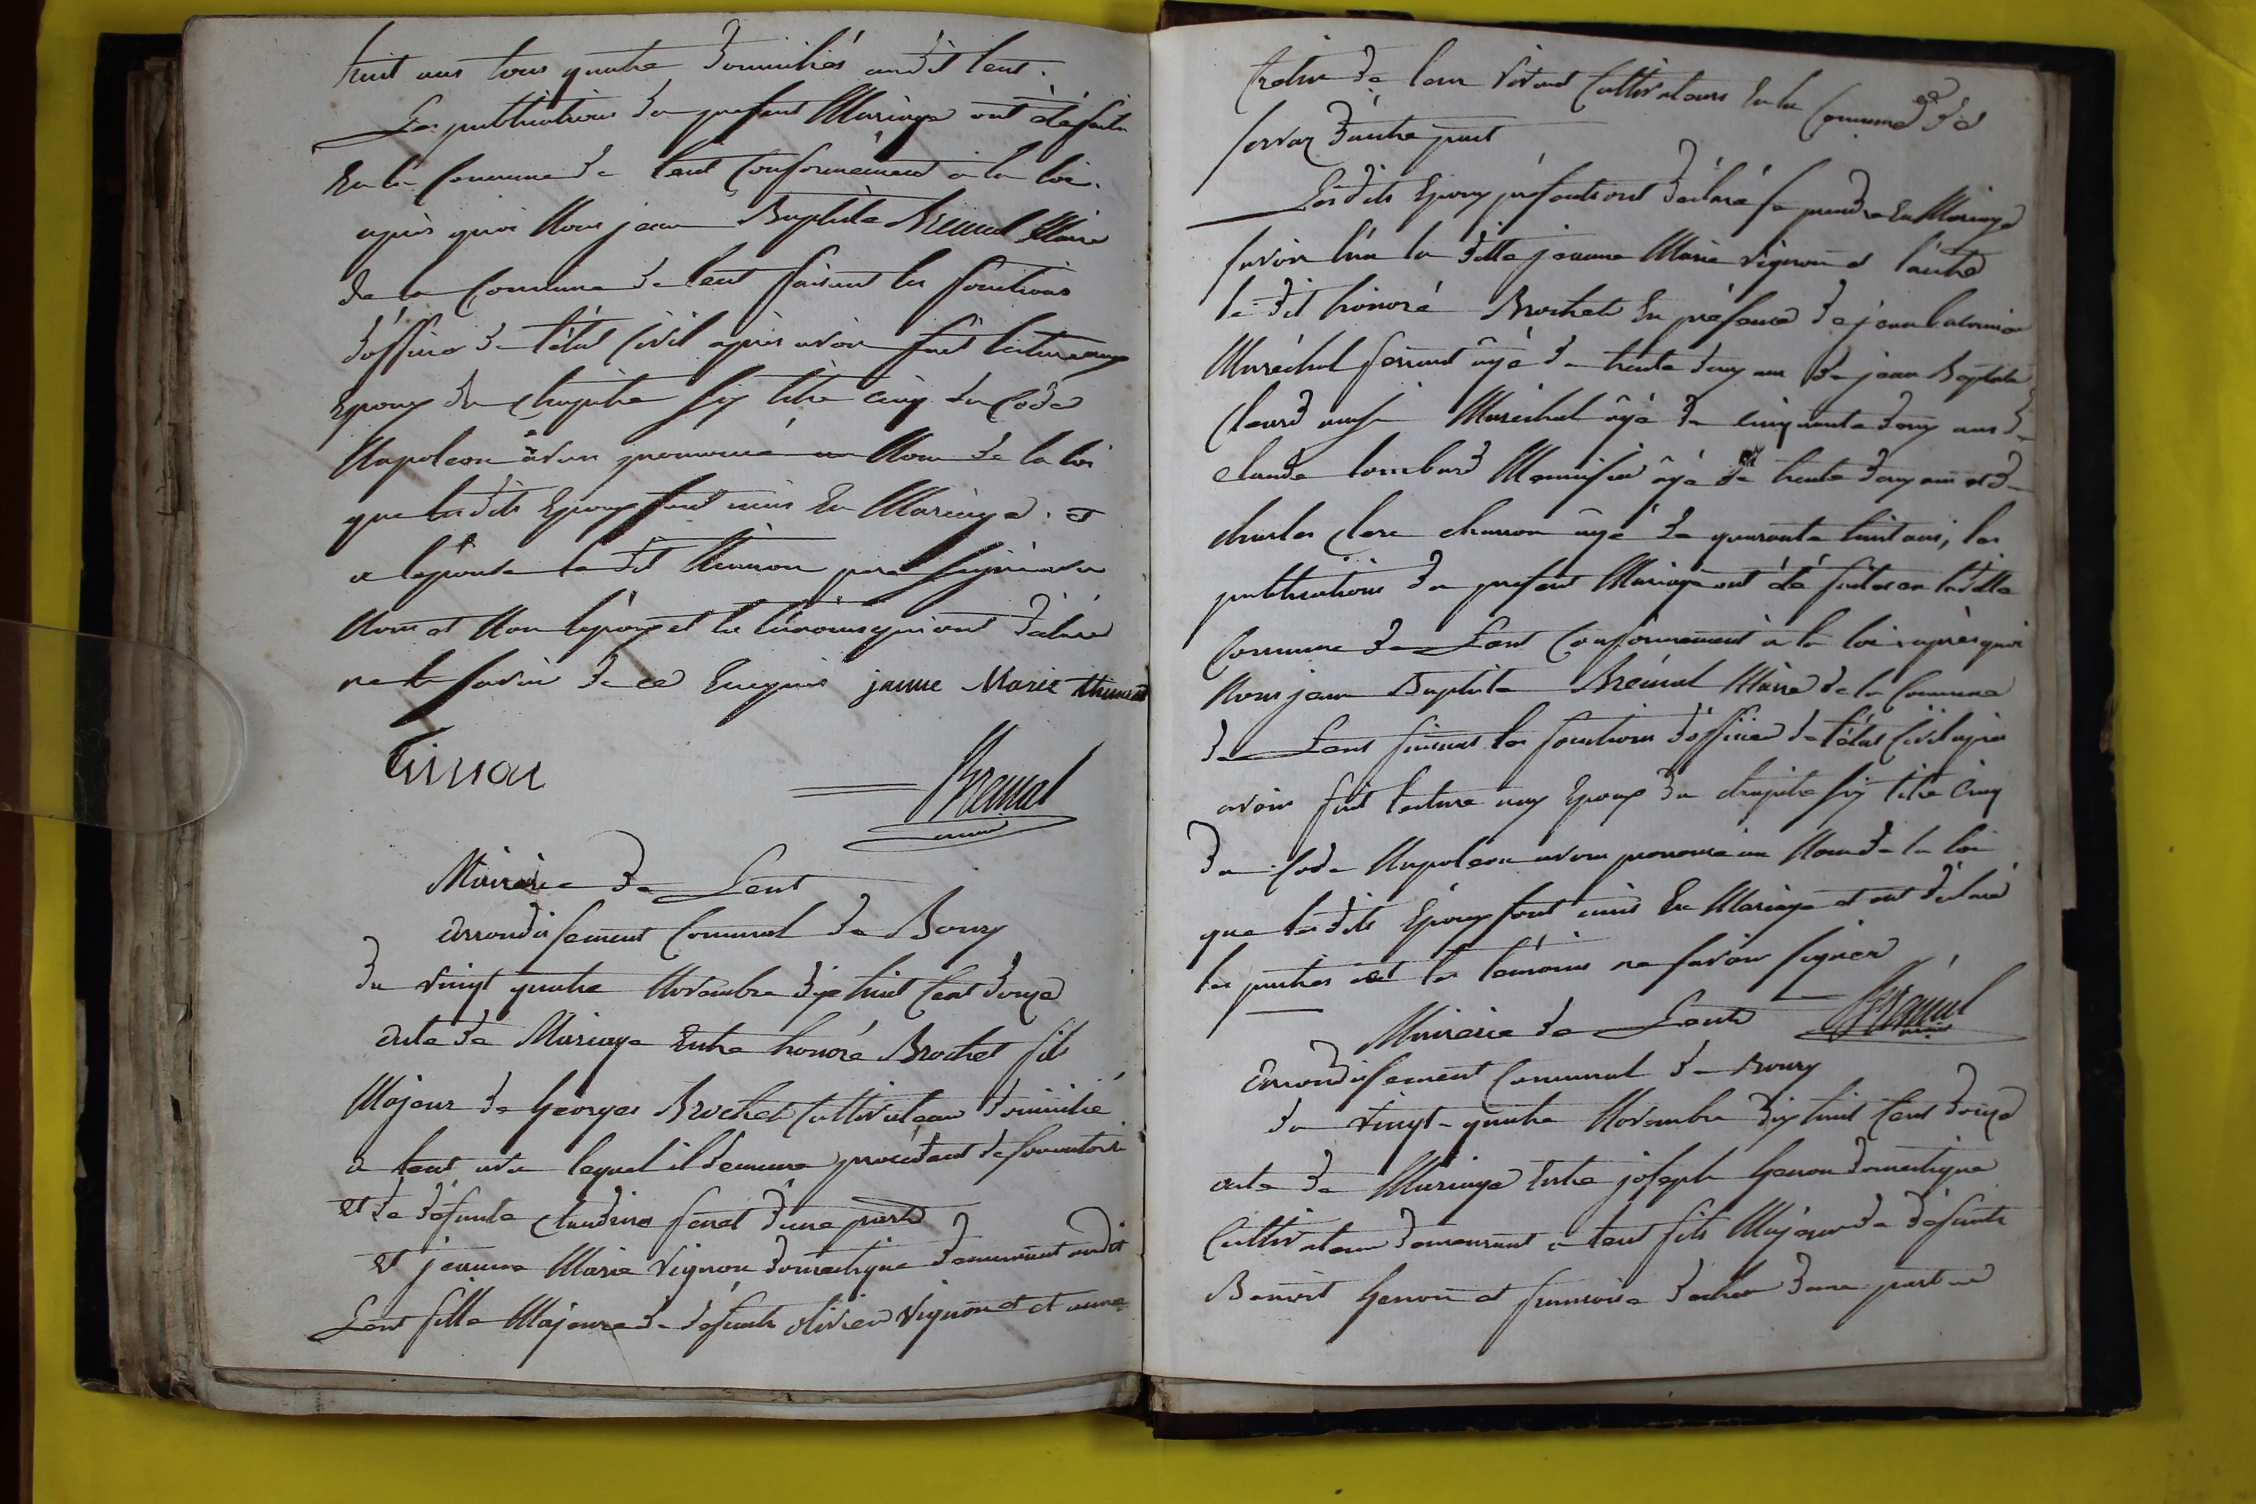 huit ans tous quatre domiciliés audit Lent.
Les publications du present Mariage ont été faites
En la Commune de Lent Conformément à la loi.
après quoi Nous jean Baptiste Bremal Maire
de la Commune de Lent faisant les fonctions
d'officier de l'état Civil après avoir fait lecture aux
Epoux du Chapitre six titre cinq du Code
Napoleon avons prononcé au Nom de la loi
que lesdits Epoux sont unis En Mariage. et
a l'epouse le dit père signé avec
Nous et Non l'époux et les témoins qui ont déclaré
ne le savoir de ce Enquis janne Marie
Bremal
Mairie de Lent
arrondissement Communal de Bourg
du vingt quatre Novembre dix huit Cent douze
acte de Mariage Entre honoré Brochet fils
Majeur de Georges Brochet Cultivateur domicilié
a Lent avec lequel il demeure procédant de son autorité
et de défunte Claudine feret d'une part
et jeanne Marie Vignon domestique demeurant audit
Lent fille Majeure de défunts olivier Vignon et et anne
de leur vivant Cultivateurs En la Commune de
servaz d'autre part
Lesdits Epoux présents ont déclaré se prendre En Mariage
savoir l'un la ditte jeanne Marie Vignon et l'autre
le dit honoré Brochet En présence de jean
Maréchal ferrant âgé de trente deux ans de jean Baptiste
aussi Maréchal âgé de cinquante deux ans de
claude lombard Menuisier âgé de trente deux ans et de
charles clerc charron agé de quarante huit ans, les
publications du present Mariage ont été faites en laditte
Commune de Lent Conformement à la loi. après quoi
Nous jean Baptiste Brémal Maire de la Commune
de Lent faisant les fonctions d'officier de l'état Civil après
avoir fait lecture aux Epoux du chapitre six titre Cinq
du Code Napoléon avons prononcé au Nom de la loi
que lesdits Epoux sont unis En Mariage et ont déclaré
les parties et les témoins ne savoir signer
Bremal
Mairie de Lent
arrondissement Communal de Bourg
du vingt-quatre Novembre dix huit Cent douze
acte de Mariage Entre joseph Genon domestique
Cultivateur demeurant a Lent fils Majeur de défunts
Benoit Genon et francoise d'une part et